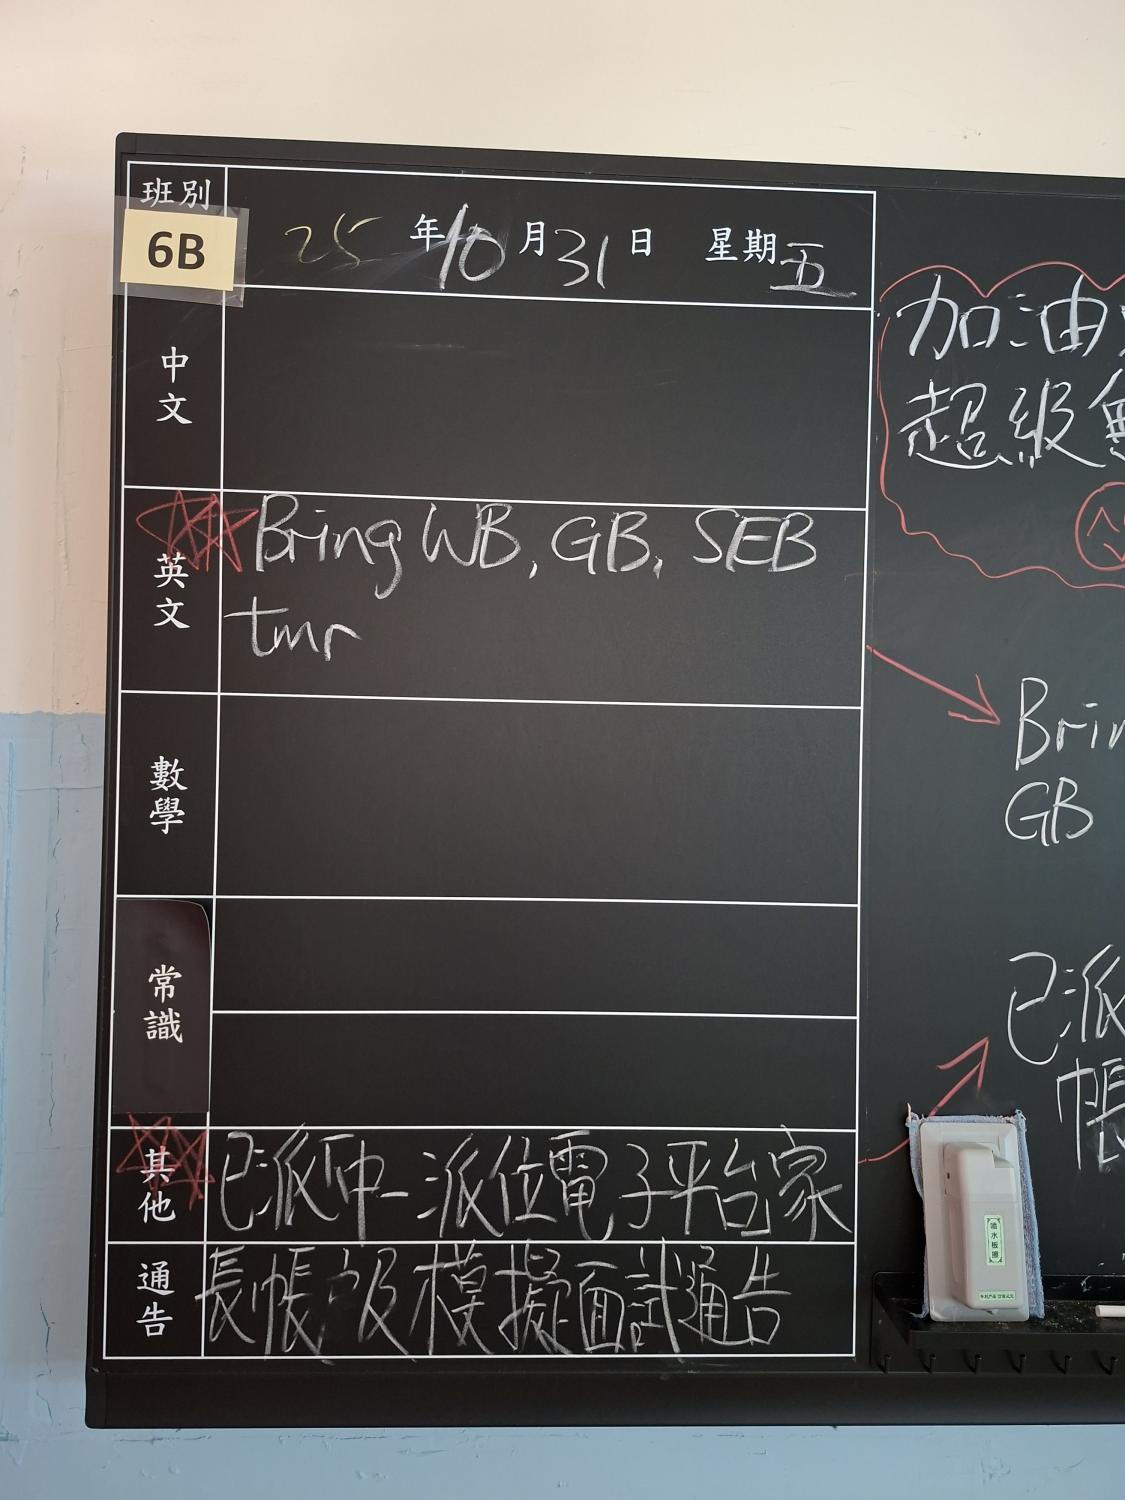 班別
6B
25年10月31日 星期五
中文
英文
Bring WB, GB, SEB
tmr
數學
常識
其他
已派中一派位電子平台家
通告
長帳戶及模擬面試通告
加油
超級無
Brin
GB
已派
帳
噴水板擦